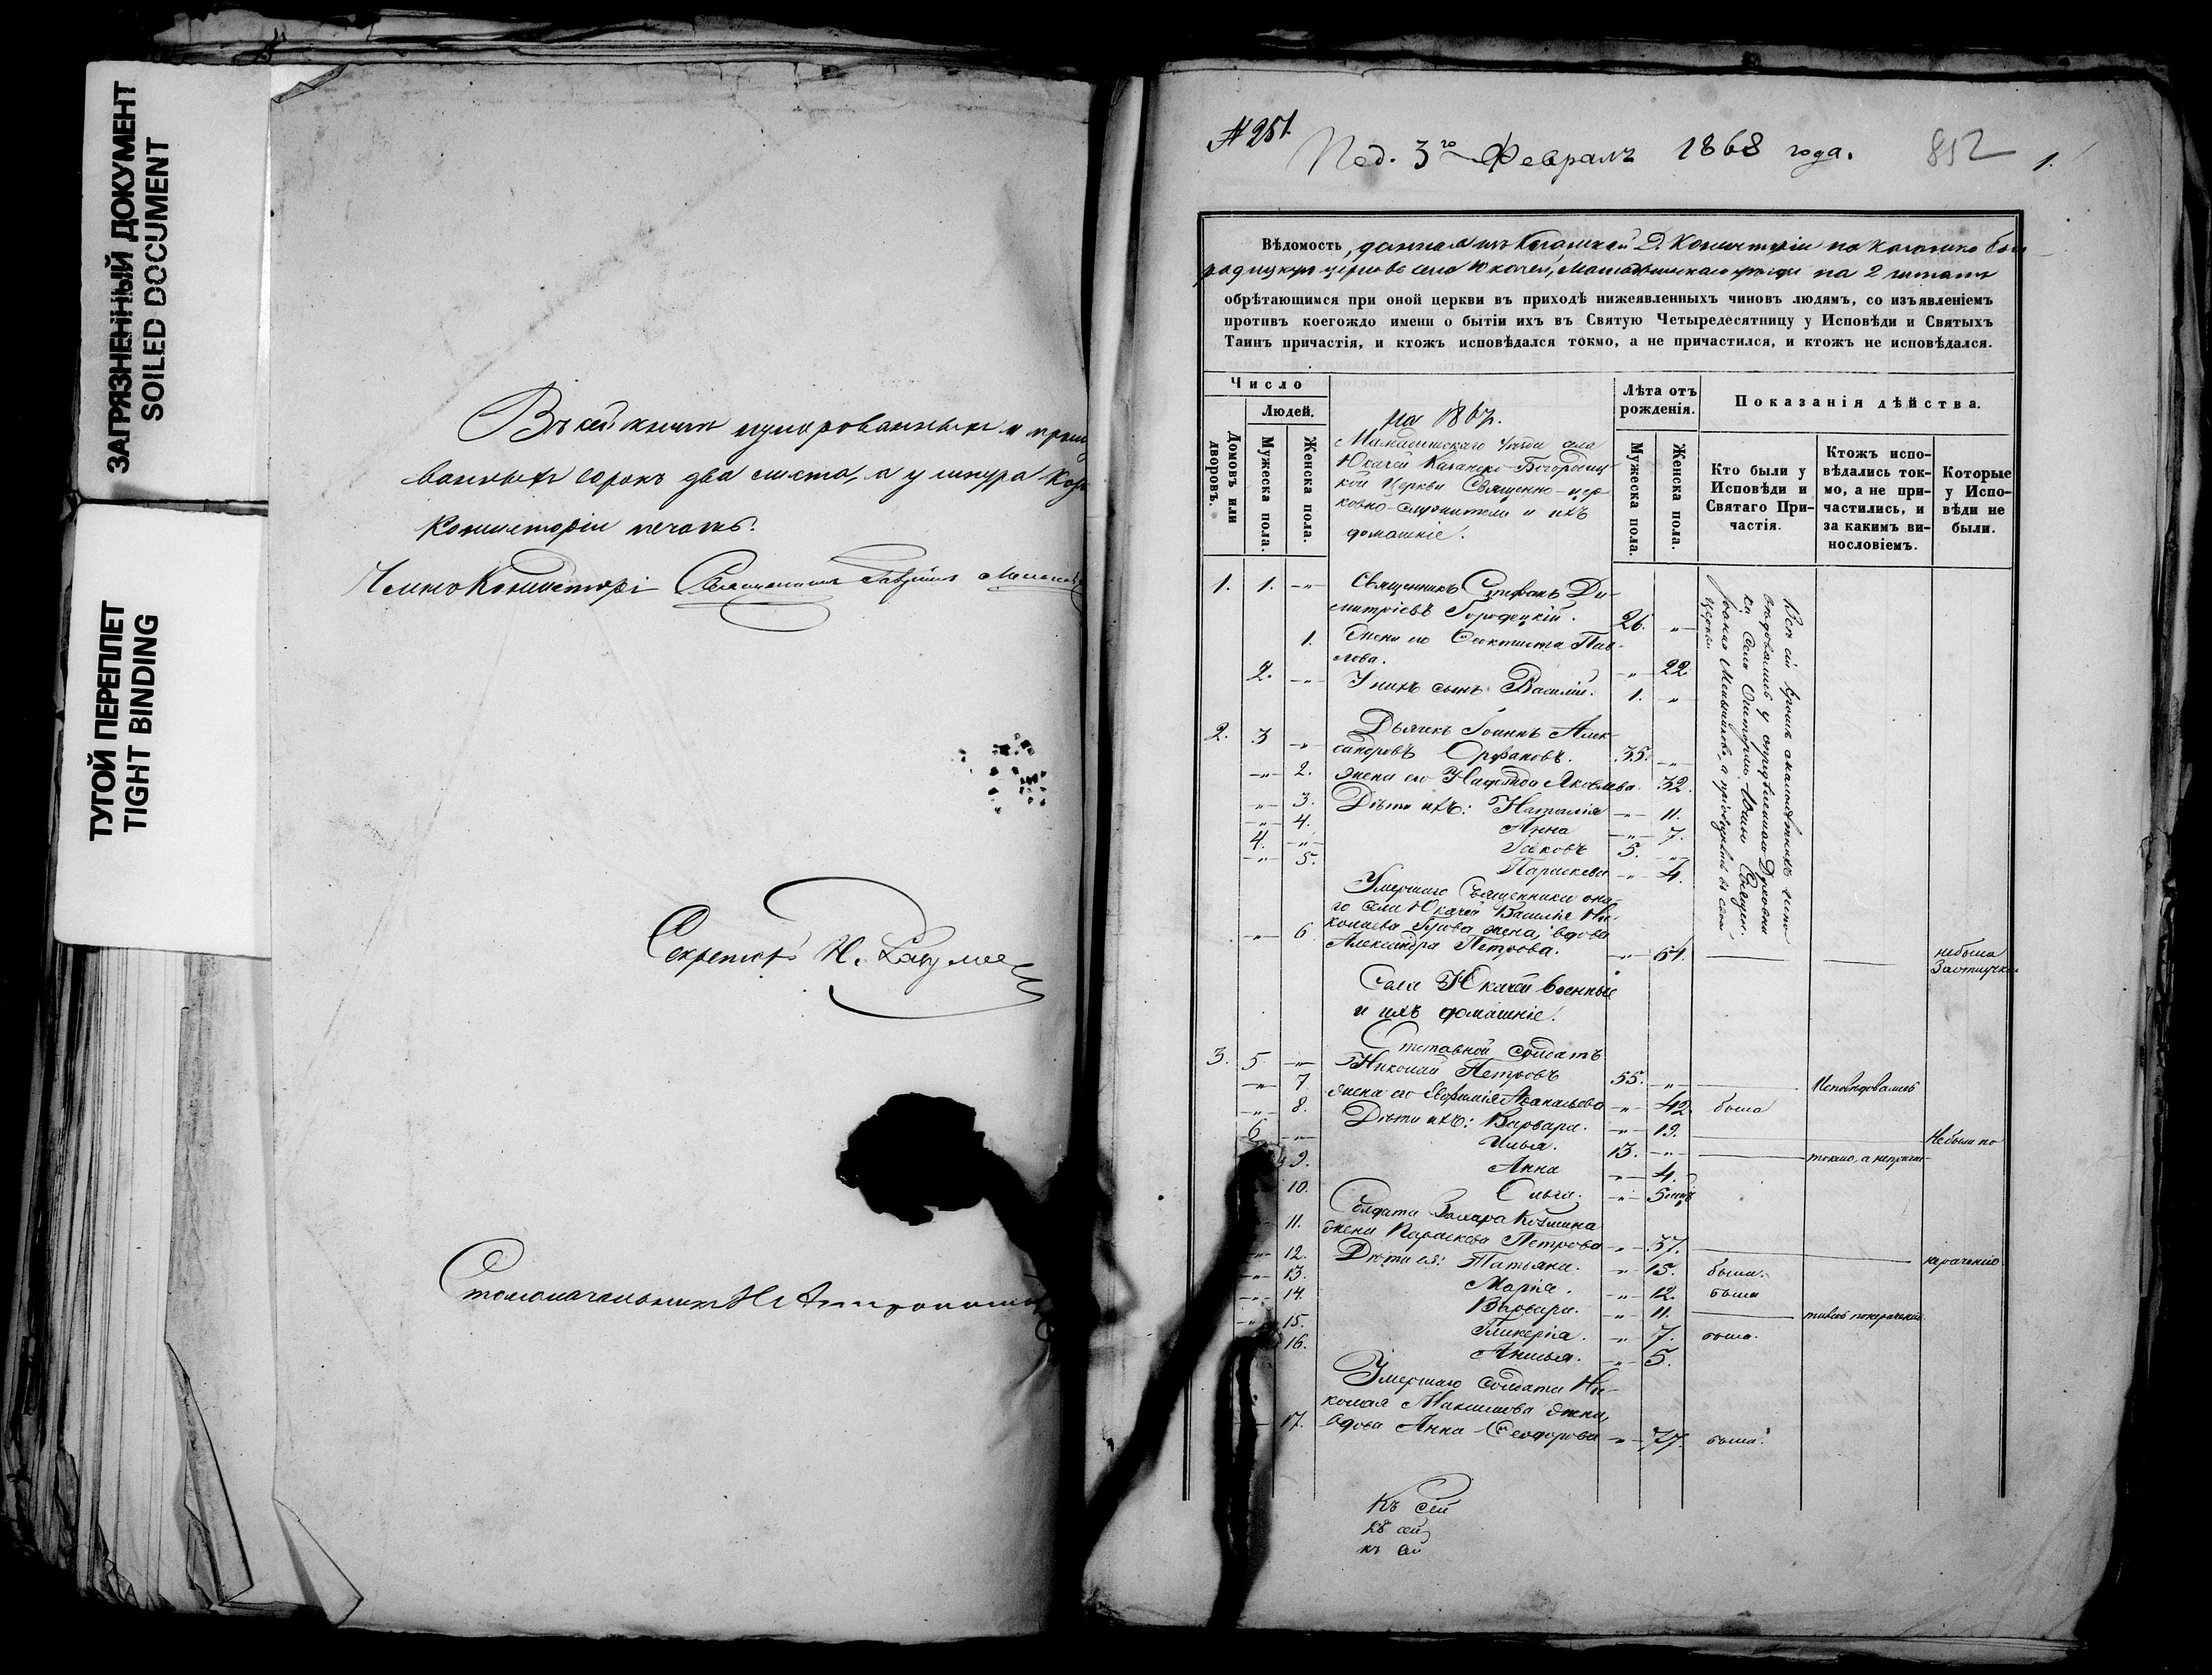 ЗАГРЯЗНЕННЫЙ ДОКУМЕНТ
SOILED DOCUMENT
ТУГОЙ ПЕРЕПЛЕТ
TIGHT BINDING
Въ сей книгѣ нумерованныхъ и прошну
ванныхъ сорокъ два листа, а у шнура Каз
Консисторіи печать.
Членъ Консисторіи Священникъ Гавріилъ
Секретарь Н.
Столоначальникъ
№ 251.
Под. 3го Февраля 1868 года.
852
1.
Вѣдомость, данная изъ Казанской Д. Консисторіи на Казанско Бого
родицкую церковь села Юкачей, Мамадышскаго уѣзда на 2 штатъ
обрѣтающимся при оной церкви въ приходѣ нижеявленныхъ чиновъ людямъ, со изъявленіемъ
противъ коегождо имени о бытіи ихъ въ Святую Четыредесятницу у Исповѣди и Святыхъ
Таинъ причастія, и ктожъ исповѣдался токмо, а не причастился, и ктожъ не исповѣдался.
Число
Домовъ или дворовъ.
Людей.
Мужеска пола.
Женска пола.
на 1867.
Мамадышскаго уѣзда села
Юкачей Казанско-Богородиц-
кой Церкви Священно-цер-
ковно-служители и ихъ
домашніе.
Лѣта отъ рожденія.
Мужеска пола.
Женска пола.
Показанія дѣйства.
Кто были у Исповѣди и Святаго При-частія.
Ктожъ испо-вѣдались ток-мо, а не при-частились, и за какимъ ви-нословіемъ.
Которые у Испо-вѣди не были.
1. 1. -"- Священникъ Стефанъ Ди-
митріевъ Городецкій. 26. "
1. Жена его Феоктиста Пав-
лова. -"- 22
2. -"- У нихъ сынъ Василій. 1. "
2. 3 -"- Дьячекъ Іоаннъ Алек-
сандровъ Орфановъ. 35. -"-
-"- 2. жена его Надежда Яковлева. 32.
-"- 3. Дѣти ихъ: Наталія -"- 11.
-"- 4. Анна -"- 7.
4. -"- Іаковъ 5. -"-
-"- 5. Параскева -"- 4.
Всѣ сіи кромѣ малолѣтнихъ
Умершаго Священника она-
го села Юкачей Василія Ни-
колаева жена, вдова
-"- 6 Александра Петрова. -"- 51. небыла
За отлучк
Села Юкачей военные
и ихъ домашніе.
Отставной солдатъ
3. 5. -"- Николай Петровъ 55. -"- Исповѣдовался
-"- 7 жена его Евфимія Аѳанасьева -"- 42 была
-"- 8. Дѣти ихъ: Варвара. -"- 19. Небыла по
6 -"- Илья. 13. -"- токмо, а неприча-
9. Анна -"- 4.
10. Ольга. -"- 5 мцъ
Солдата Захара Козмина
11. жена Параскева Петрова -"- 37. нераченію
-"- 12. Дѣти ея: Татьяна. -"- 15. была.
-"- 13. Марія. -"- 12. была
-"- 14. Варвара. -"- 11. тилась понераченію
-"- 15. Гликерія. -"- 7. была.
16. Анисья. -"- 5.
Умершаго солдата Ни-
колая Максимова жена,
17. вдова Анна Феодорова -"- 77. была.
Къ сей
къ сей
къ сей